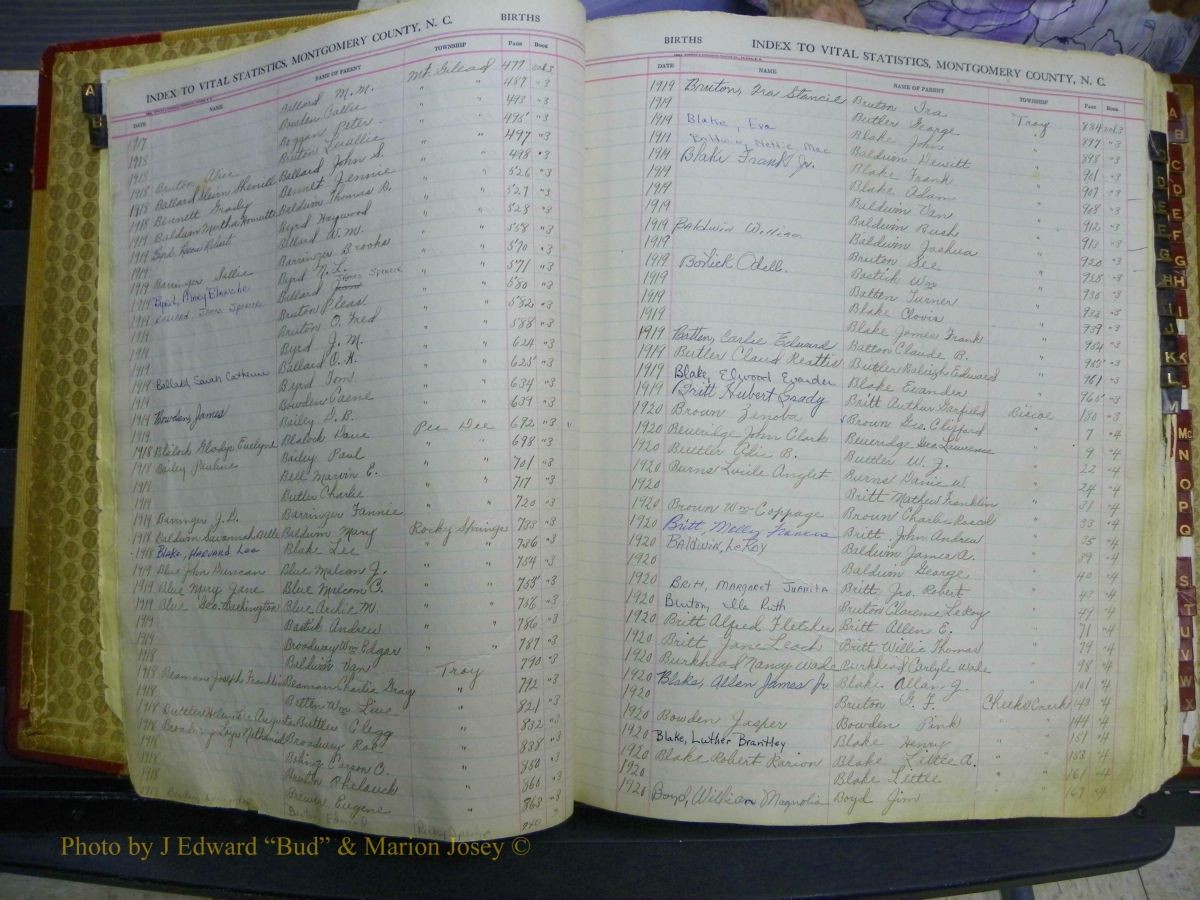 INDEX TO VITAL STATISTICS, MONTGOMERY COUNTY, N. C. BIRTHS
DATE NAME NAME OF PARENT TOWNSHIP Page Book
Ballard M. M. Mt. Gilead 477 3
1917 Bowden Callie " 487 "3
1918 Boggan Peter " 493 "3
1918 Bruton Alice Bruton Luallie " 495 "3
1918 Ballard John S. " 497 "3
1918 Bennett Grady Bennett Jennie " 498 "3
Baldwin Thomas B. " 526 "3
1919 Byrd Haywood " 527 "3
1919 Ballard W. M. " 528 "3
1919 Barringer Sallie Barringer Brooks " 558 "3
1919 Byrd, Mary Blanche Byrd N. L. " 570 "3
1919 Ballard James Spencer " 571 "3
1919 Bruton Pleas " 580 "3
1919 Bruton O. Fred " 582 "3
1919 Byrd J. M. " 588 "3
1919 Ballard Sarah Catherine Ballard C. H. " 624 "3
Byrd Tom " 625 "3
1919 Bowden, James Bowden Caene " 634 "3
1919 Bailey D. B. " 639 "3
1918 Blalock Gladys Evelyne Blalock Dave Pee Dee 672 "3
1918 Bailey Pauline Bailey Paul " 698 "3
1918 Bell Marvin E. " 701 "3
1919 Butler Charlie " 717 "3
1919 Barringer J. D. Barringer Fannie " 720 "3
1918 Baldwin Savannah Belle Baldwin Mary Rocky Springs 733 "3
1918 Blake, Harvard Lee Blake Lee " 736 "3
1919 Blue John Duncan Blue Malcom J. " 754 "3
1919 Blue Mary Jane Blue Malcom C. " 755 "3
1919 Blue Geo. Washington Blue Archie M. " 756 "3
1919 Bostik Andrew " 786 "3
1919 Broadway Wm Edgar " 787 "3
1918 Baldwin Van Troy 790 "3
1918 Beaman Joseph Franklin Beaman Charlie Gray " 792 "3
1918 Batten Wm Line " 821 "3
1918 Buttler Clegg " 832 "3
1918 Broadway Loyd Nathaniel Broadway Roe " 838 "3
1918 Boling Carson O. " 850 "3
1918 Bruton Phelouck " 860 "3
1918 Brewer Eugene " 863 "3
Rocky Springs 940
BIRTHS INDEX TO VITAL STATISTICS, MONTGOMERY COUNTY, N. C.
DATE NAME NAME OF PARENT TOWNSHIP Page Book
1919 Bruton, Ira Stancil Bruton Ira Troy 884 3
1919 Butler George " 897 "3
1919 Blake, Eva Blake John " 898 "3
1919 Baldwin, Nettie Mae Baldwin Dewitt " 901 "3
1919 Blake Frank Jr. Blake Frank " 907 "3
1919 Blake Adam " 908 "3
1919 Baldwin Van " 912 "3
1919 Baldwin William Baldwin Bush " 913 "3
1919 Baldwin Joshua " 920 "3
1919 Bostick Odell. Bruton See " 928 "3
1919 Bostick Wm " 930 "3
1919 Batten Turner " 932 "3
1919 Blake Clovis " 939 "3
1919 Blake James Frank " 954 "3
1919 Batten, Carlie Edward Batton Claude B. " 955 "3
1919 Butler Claud Reattis Butler Raleigh Edward " 961 "3
1919 Blake, Elwood Evander Blake Evander " 965 "3
1919 Britt Hubert Grady Britt Arthur Garfield Biscoe 180 "3
1920 Brown Zenoba Brown Geo. Clifford " 7 "4
1920 Beveridge John Clark Beveridge Geo Lawrence " 9 "4
1920 Buttler Alic B. Buttler W. J. " 22 "4
1920 Burns Lucile Anglet Burns Danie W " 24 "4
1920 Britt Mathew Franklin " 31 "4
1920 Brown Wm Coppage Brown Charles Roscoe " 33 "4
1920 Britt, Molly Francis Britt John Andrew " 35 "4
1920 Baldwin, LeRoy Baldwin James A. " 39 "4
1920 Baldwin George " 40 "4
1920 Britt, Margaret Juanita Britt Jno. Robert " 43 "4
1920 Bruton, Ila Ruth Bruton Clarence LeRoy " 49 "4
1920 Britt Alfred Fletcher Britt Allen E. " 71 "4
1920 Britt Jane Leach Britt Willie Thomas " 79 "4
1920 Burkhead Nancy Wade Burkhead Carlyle Wade " 98 "4
1920 Blake, Allen James Jr Blake Allan J. " 101 "4
1920 Bruton D. F. Cheeks Creek 143 "4
1920 Bowden Jasper Bowden Pink " 144 "4
1920 Blake, Luther Brantley Blake Henry " 151 "4
1920 Blake Robert Rarion Blake Little A. " 153 "4
1920 Blake Little " 161 "4
1920 Boyd, William Magnolia Boyd Jim " 167 "4
A
B
A
B
C
D
E
F
G
H
I
J
K
L
M
Mc
N
O
P
Q
S
T
U
V
W
X
Photo by J Edward “Bud” & Marion Josey ©